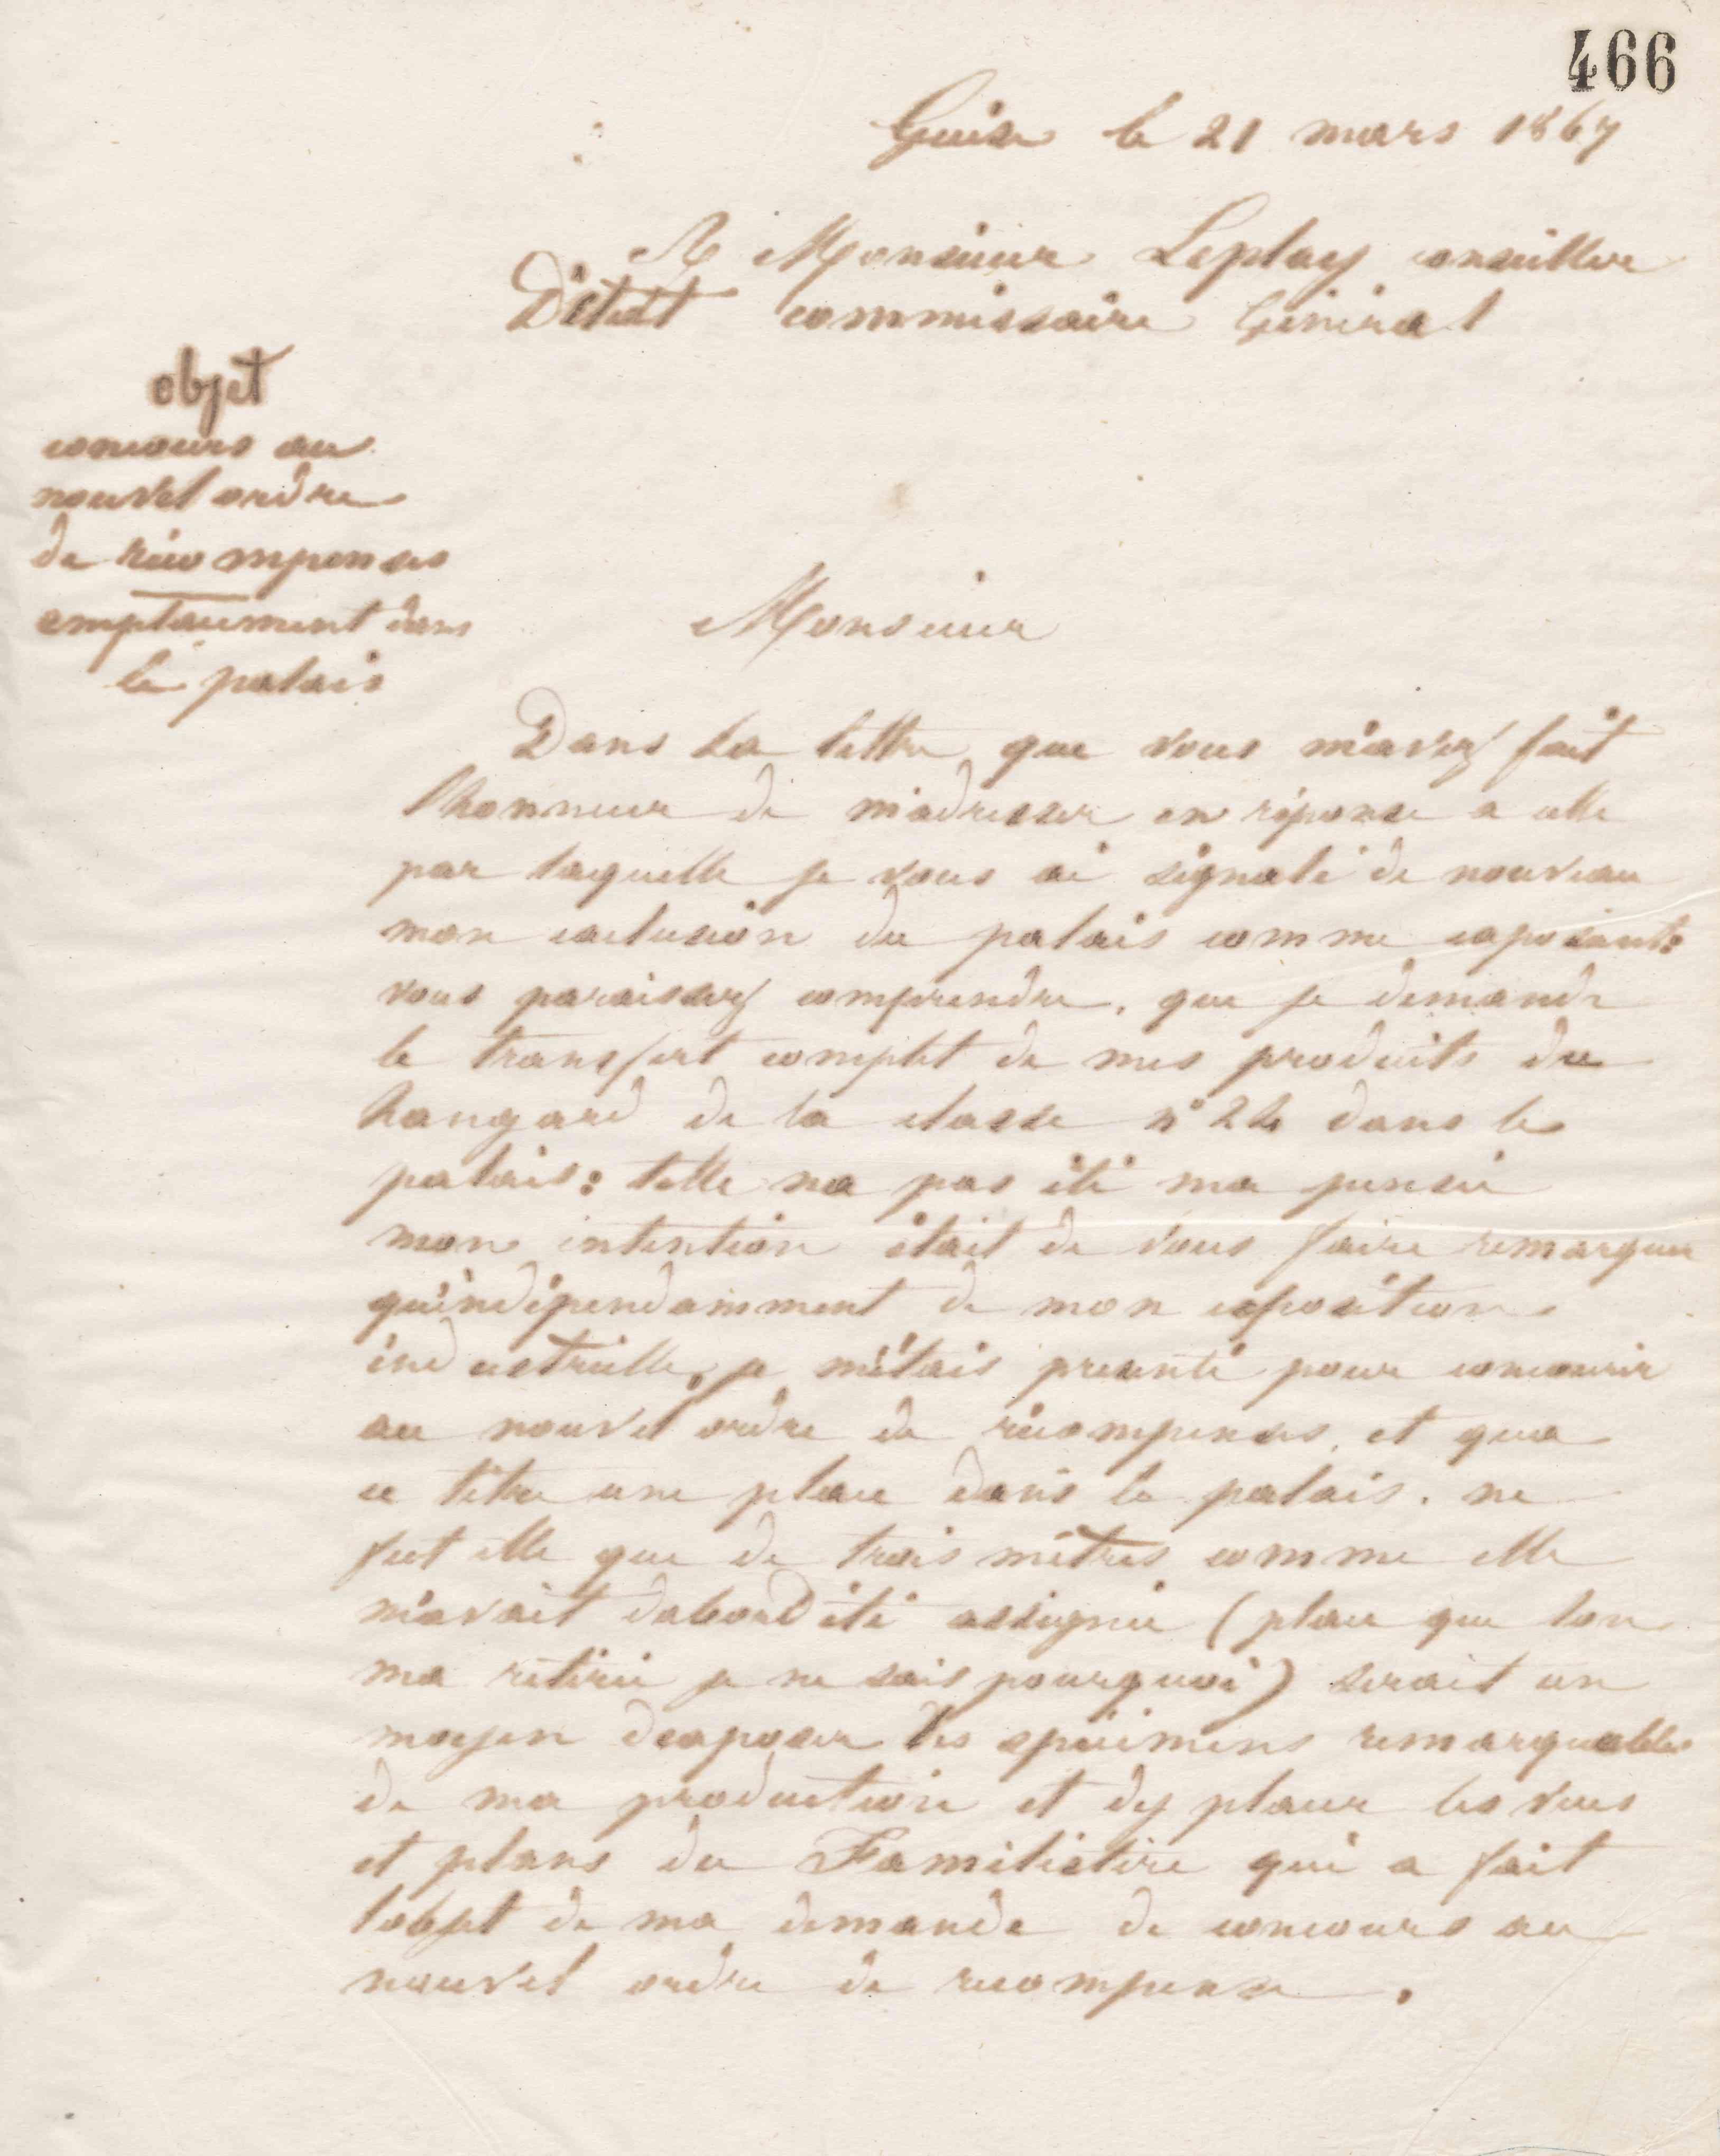 466
Guise le 21 mars 1867
A Monsieur Leplay conseiller
D'état commissaire Général
objet
concours au
nouvel ordre
de récompenses
emplacement dans
le palais
Monsieur
Dans la lettre que vous m'avez fait
l'honneur de m'adresser en réponse a celle
par laquelle je vous ai signalé de nouveau
mon exclusion du palais comme exposant:
vous paraissez comprendre, que je demande
le transfert complet de mes produits du
hangard de la classe n° 24 dans le
palais: telle na pas été ma pensée
mon intention était de vous faire remarquer
qu'indépendamment de mon exposition
industrielle, je m'étais présenté pour concourir
au nouvel ordre de récompenses, et qua
ce titre une place dans le palais. ne
fut elle que de trois mètres comme elle
m'avait dabord été assignée (place que lon
ma retirée je ne sais pourquoi) serait un
moyen dexposer des spécimens remarquables
de ma production et dy placer les vues
et plans du Familistère qui a fait
lobjet de ma demande de concours au
nouvel ordre de recompense.